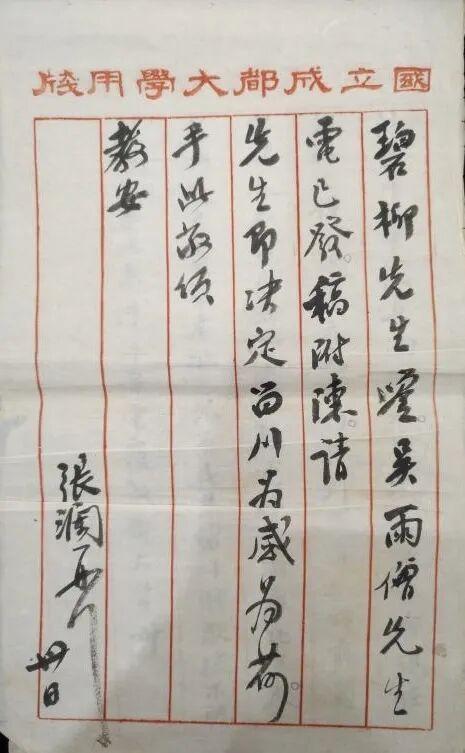 國立成都大學用牋
碧柳先生鑒。吳雨僧先生
電已發。稿附陳。請
先生即決定留川為感為荷。
手此敬頌
教安
張瀾
廿日